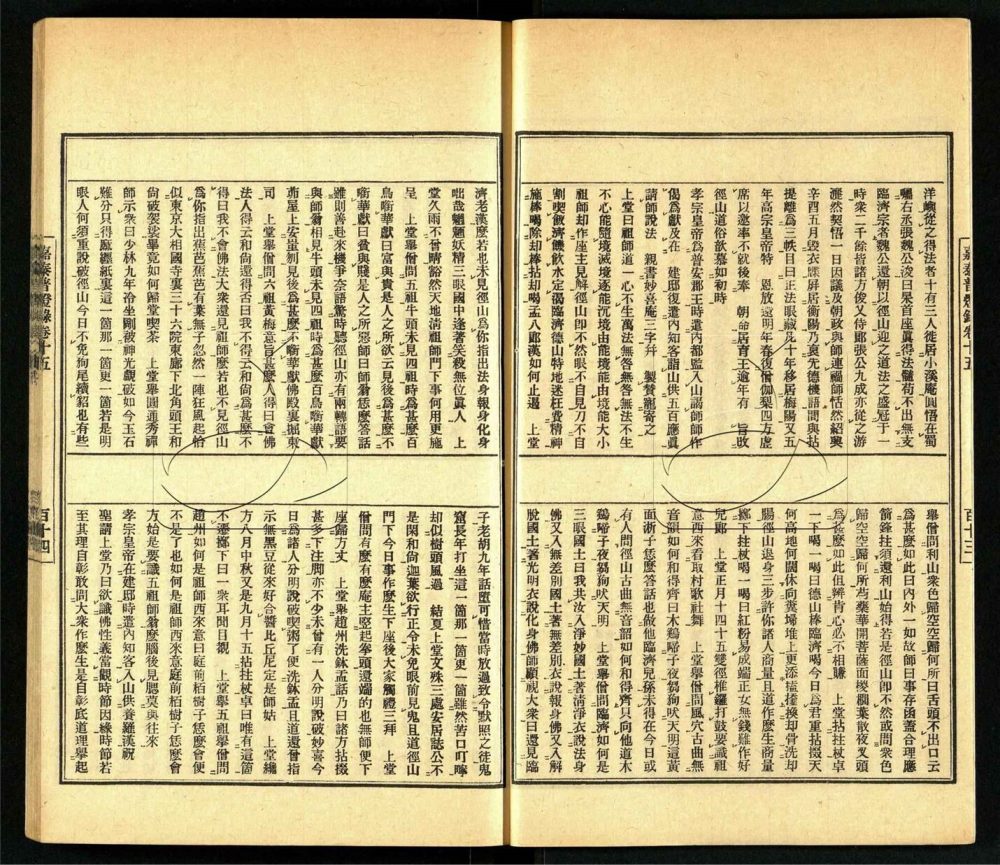 嘉泰普燈錄卷十五
百十三
洋嶼從之得法者十有三人徙居小溪庵圓悟在蜀
囑右丞張魏公浚曰杲首座眞得法髓苟不出無支
臨濟宗者魏公還朝以徑山迎之道法之盛冠于一
時衆二千餘皆諸方俊乂侍郎張公九成亦從之游
灑然契悟一日因議及朝政與師連禍師恬然紹興
辛酉五月毀衣牒屏居衡陽乃裒先德機語間與拈
提離爲三帙目曰正法眼藏凡十年移居梅陽又五
年高宗皇帝特 恩放還明年春復僧伽梨四方虛
席以邀率不就後奉 朝命居育王逾年有 旨改
徑山道俗歆慕如初時
孝宗皇帝爲普安郡王時遣內都監入山謁師師作
偈爲獻及在 建邸復遣內知客詣山供五百應眞
請師說法 親書妙喜庵三字幷 製贊寵寄之
上堂曰祖師道一心不生萬法無咎無咎無法不生
不心能隨境滅境逐能沉境由能境能由境能大小
祖師却作座主見解徑山卽不然眼不自見刀不自
割喫飯濟饑飲水定渴臨濟德山特地迷枉費精神
施棒喝除却棒拈却喝孟八郎漢如何止遏 上堂
舉僧問利山衆色歸空空歸何所曰舌頭不出口云
爲甚麼如此曰內外一如故師曰事存函蓋合理應
箭鋒拄須還利山始得若是徑山卽不然或問衆色
歸空空歸何所芍藥華開菩薩面椶櫚葉散夜叉頭
爲甚麼如此但辨肯心必不相賺 上堂拈拄杖卓
一下喝一喝曰德山棒臨濟喝今日爲君重拈掇天
何高地何闊休向糞埽堆上更添搕𢶍換却骨洗却
腸徑山退身三步許你諸人商量且道作麼生商量
擲下拄杖喝一喝曰紅粉易成端正女無錢難作好
兒郞 上堂正月十四十五雙徑椎鑼打鼓要識祖
意西來看取村歌社舞 上堂舉僧問風穴古曲無
音韻如何和得齊曰木鷄啼子夜芻狗吠天明這黃
面浙子恁麼答話也做他臨濟兒孫未得在今日或
有人問徑山古曲無音韻如何和得齊只向他道木
鷄啼子夜芻狗吠天明 上堂舉僧問臨濟如何是
三眼國土曰我共汝入淨妙國土著清淨衣說法身
佛又入無差別國土著無差別衣說報身佛又入解
脫國土著光明衣說化身佛師顧視大衆曰還見臨
濟老漢麼若也未見徑山爲你指出法身報身化身
咄哉魍魎妖精三眼國中逢著笑殺無位眞人 上
堂久雨不曾晴豁然天地淸祖師門下事何用更施
呈 上堂舉僧問五祖牛頭未見四祖時爲甚麼百
鳥㘅華獻曰富與貴是人之所欲云見後爲甚麼不
㘅華獻曰貧與賤是人之所惡師曰師翁恁麼答話
雖則善赴來機爭奈語驚時聽徑山亦有兩轉語要
與師翁相見牛頭未見四祖時爲甚麼百鳥㘅華獻
茆屋上安蚩吻見後爲甚麼不㘅華獻佛殿裏掘東
司 上堂舉僧問六祖黃梅意旨甚麼人得曰會佛
法人得云和尙還得否曰我不得云和尙爲甚麼不
得曰我不會佛法大衆還見祖師麼若也不見徑山
爲你指出蕉芭蕉芭有葉無了忽然一陣狂風起恰
似東京大相國寺裏三十六院東廊下北角頭王和
尙破袈裟畢竟如何歸堂喫茶 上堂舉圓通秀禪
師示衆曰少林九年冷坐剛被神光覷破如今玉石
難分只得麻纏紙裏這一箇那一箇更一箇若是明
眼人何須重說破徑山今日不免狗尾續貂也有些
子老胡九年話墮可惜當時放過致令默照之徒鬼
窟長年打坐這一箇那一箇更一箇雖然苦口叮嚀
却似樹頭風過 結夏上堂文殊三處安居誌公不
是閑和尙迦葉欲行正令未免眼前見鬼且道徑山
門下今日事作麼生下座後大家觸禮三拜 上堂
僧問有麼有麼庵主竪起拳頭還端的也無師便下
座歸方丈 上堂舉趙州洗鉢盂話乃曰諸方拈掇
甚多下注脚亦不少未曾有一人分明說破妙喜今
日爲諸人分明說破喫粥了便洗鉢盂且道還曾指
示無黑豆從來好合醬比丘尼定是師姑 上堂纔
方八月中秋又是九月十五拈拄杖卓曰唯有這箇
不遷擲下曰一衆耳聞目覩 上堂舉五祖舉僧問
趙州如何是祖師西來意曰庭前柏樹子恁麼會便
不是了也如何是祖師西來意庭前柏樹子恁麼會
方始是要識五祖師翁麼腦後見腮莫與往來
孝宗皇帝在建邸時遣內知客入山供養羅漢祝
聖請上堂乃曰欲識佛性義當觀時節因緣時節若
至其理自彰敢問大衆作麼生是自彰底道理擧起
嘉泰普燈錄卷十五
百十四